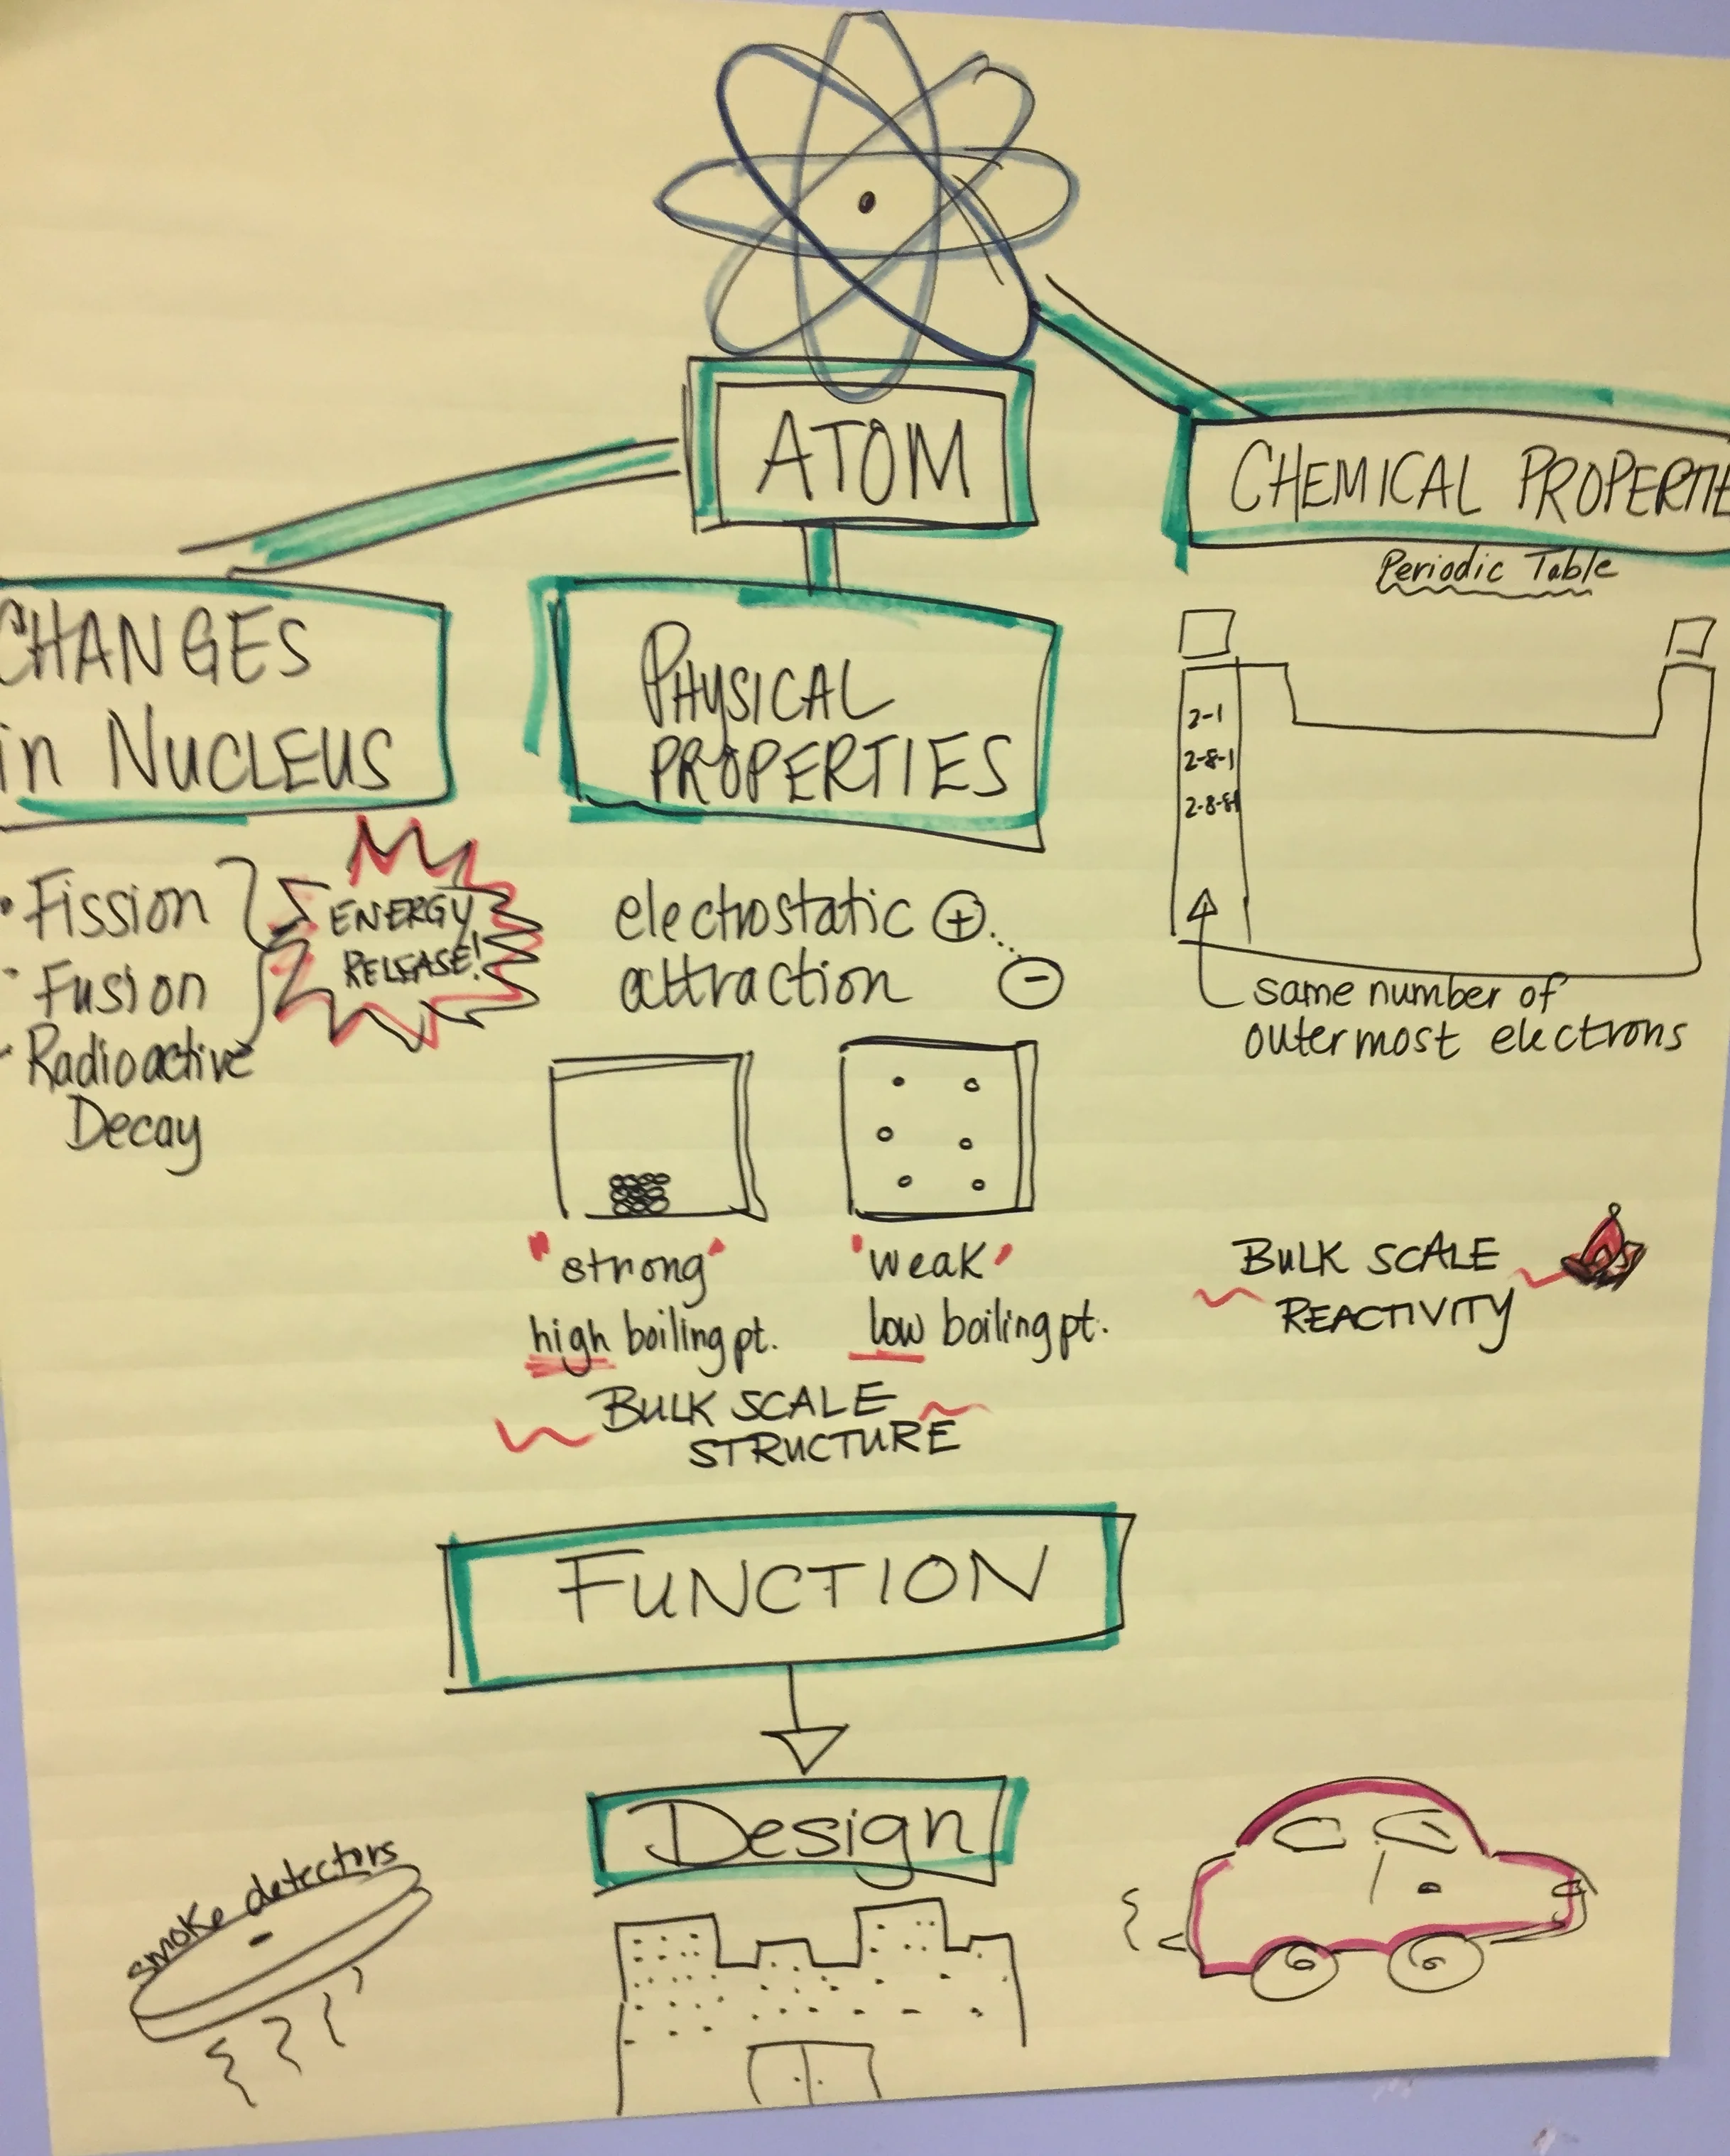 ATOM
CHANGES
in NUCLEUS
• Fission
• Fusion
• Radioactive
Decay
ENERGY
RELEASE!
PHYSICAL
PROPERTIES
electrostatic +
attraction -
"strong"
high boiling pt.
"weak"
low boiling pt.
BULK SCALE
STRUCTURE
CHEMICAL PROPERTIE
Periodic Table
2-1
2-8-1
2-8-8-1
same number of
outermost electrons
BULK SCALE
REACTIVITY
FUNCTION
Design
smoke detectors